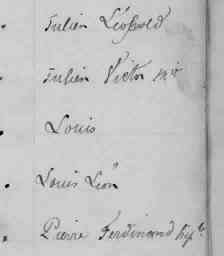 Julien Léopold
Julien Victor
Louis
Louis Léon
Pierre Ferdinand hyp.te